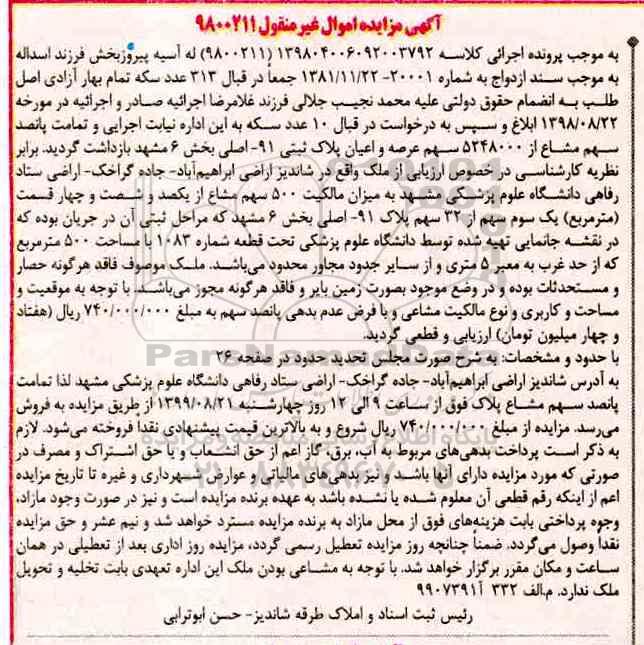 آگهی مزایده اموال غیر منقول ۹۸۰۰۲۱۱
به موجب پرونده اجرائی کلاسه ۱۳۹۸۰۴۰۰۶۰۹۲۰۰۳۷۹۲ (۹۸۰۰۲۱۱) له آسیه پیروزبخش فرزند اسداله
به موجب سند ازدواج به شماره ۲۰۰۰۱- ۱۳۸۱/۱۱/۲۲ جمعاً در قبال ۳۱۳ عدد سکه تمام بهار آزادی اصل
طلب به انضمام حقوق دولتی علیه محمد نجیب جلالی فرزند غلامرضا اجرائیه صادر و اجرائیه در مورخه
۱۳۹۸/۰۸/۲۲ ابلاغ و سپس به درخواست در قبال ۱۰ عدد سکه به این اداره نیابت اجرایی و تمامت پانصد
سهم مشاع از ۵۲۴۸۰۰۰ سهم عرصه و اعیان پلاک ثبتی ۹۱- اصلی بخش ۶ مشهد بازداشت گردید. برابر
نظریه کارشناسی در خصوص ارزیابی از ملک واقع در شاندیز اراضی ابراهیم‌آباد- جاده گراخک- اراضی ستاد
رفاهی دانشگاه علوم پزشکی مشهد به میزان مالکیت ۵۰۰ سهم مشاع از یکصد و شصت و چهار قسمت
(مترمربع) یک سوم سهم از ۳۲ سهم پلاک ۹۱- اصلی بخش ۶ مشهد که مراحل ثبتی آن در جریان بوده که
در نقشه جانمایی تهیه شده توسط دانشگاه علوم پزشکی تحت قطعه شماره ۱۰۸۳ با مساحت ۵۰۰ مترمربع
که از حد غرب به معبر ۵ متری و از سایر حدود مجاور محدود می‌باشد. ملک موصوف فاقد هرگونه حصار
و مستحدثات بوده و در وضع موجود بصورت زمین بایر و فاقد هرگونه مجوز می‌باشد. با توجه به موقعیت و
مساحت و کاربری و نوع مالکیت مشاعی و با فرض عدم بدهی پانصد سهم به مبلغ ۷۴۰/۰۰۰/۰۰۰ ریال (هفتاد
و چهار میلیون تومان) ارزیابی و قطعی گردید.
با حدود و مشخصات: به شرح صورت مجلس تحدید حدود در صفحه ۲۶
به آدرس شاندیز اراضی ابراهیم‌آباد- جاده گراخک- اراضی ستاد رفاهی دانشگاه علوم پزشکی مشهد لذا تمامت
پانصد سهم مشاع پلاک فوق از ساعت ۹ الی ۱۲ روز چهارشنبه ۱۳۹۹/۰۸/۲۱ از طریق مزایده به فروش
می‌رسد. مزایده از مبلغ ۷۴۰/۰۰۰/۰۰۰ ریال شروع و به بالاترین قیمت پیشنهادی نقداً فروخته می‌شود. لازم
به ذکر است پرداخت بدهی‌های مربوط به آب، برق، گاز اعم از حق انشعاب و یا حق اشتراک و مصرف در
صورتی که مورد مزایده دارای آنها باشد و نیز بدهی‌های مالیاتی و عوارض شهرداری و غیره تا تاریخ مزایده
اعم از اینکه رقم قطعی آن معلوم شده یا نشده باشد به عهده برنده مزایده است و نیز در صورت وجود مازاد،
وجوه پرداختی بابت هزینه‌های فوق از محل مازاد به برنده مزایده مسترد خواهد شد و نیم عشر و حق مزایده
نقداً وصول می‌گردد. ضمناً چنانچه روز مزایده تعطیل رسمی گردد، مزایده روز اداری بعد از تعطیلی در همان
ساعت و مکان مقرر برگزار خواهد شد. با توجه به مشاعی بودن ملک این اداره تعهدی بابت تخلیه و تحویل
ملک ندارد. م.الف ۳۳۲ آ۹۹۰۷۳۹۱
رئیس ثبت اسناد و املاک طرقه شاندیز- حسن ابوترابی